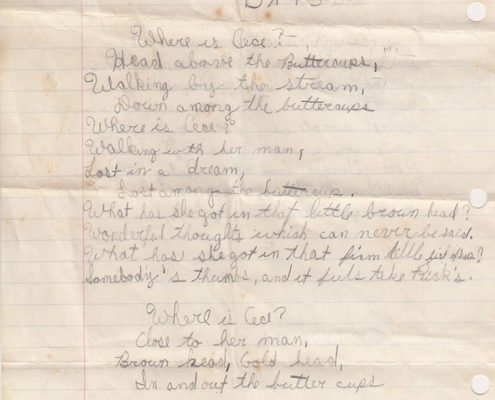 Where is Cece?
Head above the Buttercups,
Walking by the stream,
Down among the buttercups
Where is Cece?
Walking with her man,
Lost in a dream,
Lost among the buttercup.
What has she got in that little brown head?
Wonderful thoughts which can never be said.
What has she got in that firm little fist of hers?
Somebody's thumb, and it feels like Rick's.
Where is Cece?
Close to her man,
Brown head, Gold head,
In and out the butter cups